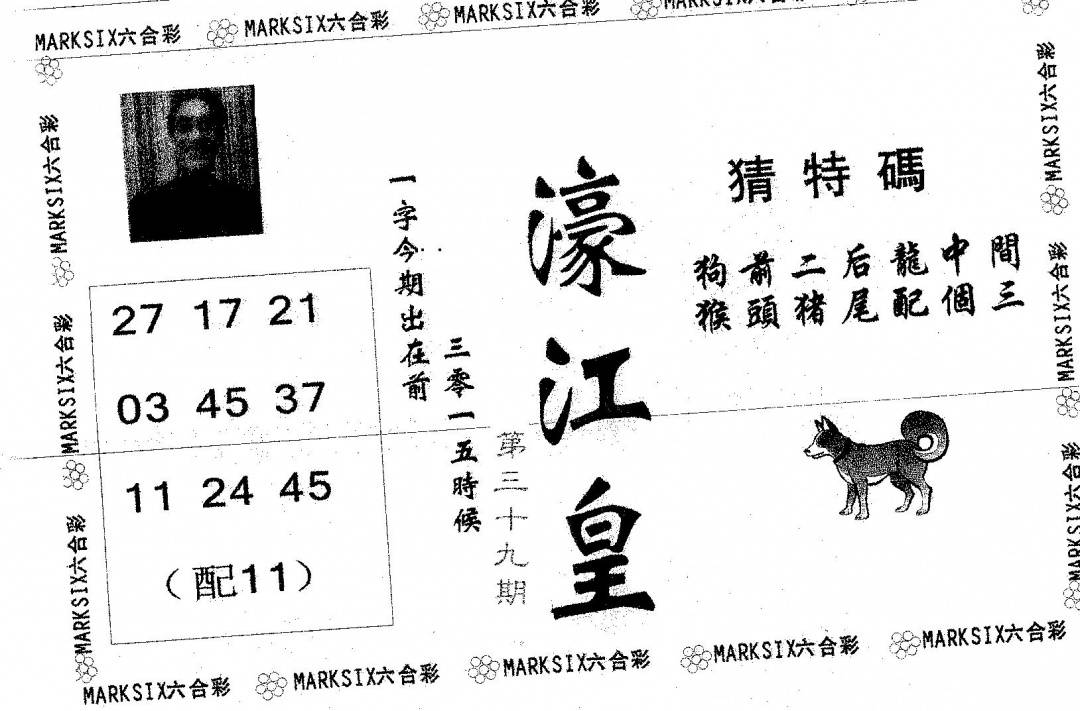 MARKSIX六合彩 MARKSIX六合彩 MARKSIX六合彩
MARKSIX六合彩
MARKSIX六合彩
MARKSIX六合彩
27 17 21
03 45 37
11 24 45
（配11）
一字今期出在前
三零一五時候
第三十九期
濠江皇
猜特碼
狗前二后龍中間
猴頭豬尾配個三
MARKSIX六合彩
MARKSIX六合彩
MARKSIX六合彩
MARKSIX六合彩 MARKSIX六合彩 MARKSIX六合彩 MARKSIX六合彩 MARKSIX六合彩